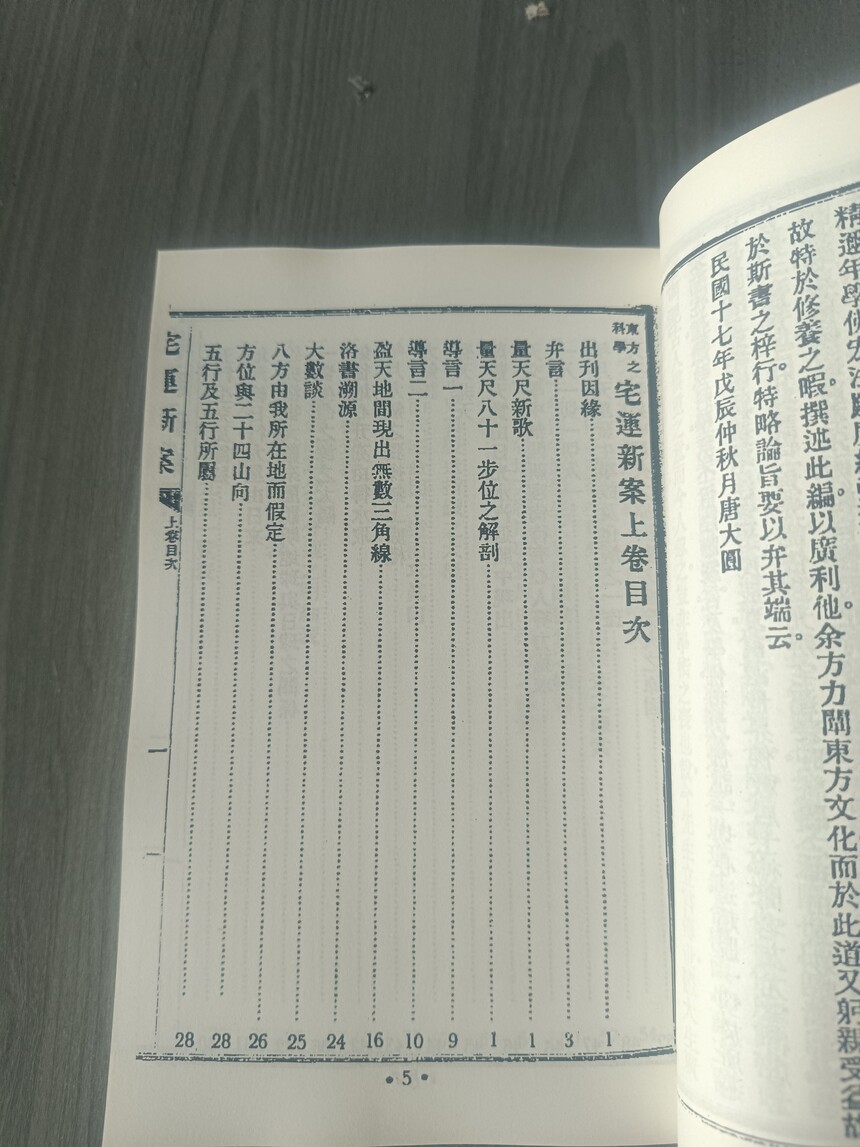 故特於修養之暇。撰述此編。以廣利他。余方力闡東方文化而於此道又躬親受益故
於斯書之梓行特略論旨要以弁其端云。
民國十七年戊辰仲秋月唐大圓
東方之科學 宅運新案上卷目次
出刊因緣 1
弁言 3
量天尺新歌 1
量天尺八十一步位之解剖 1
導言一 9
導言二 10
盈天地間現出無數三角線 16
洛書溯源 24
大數談 25
八方由我所在地而假定 26
方位與二十四山向 28
五行及五行所屬 28
宅運新案 上卷目次 一
•5•